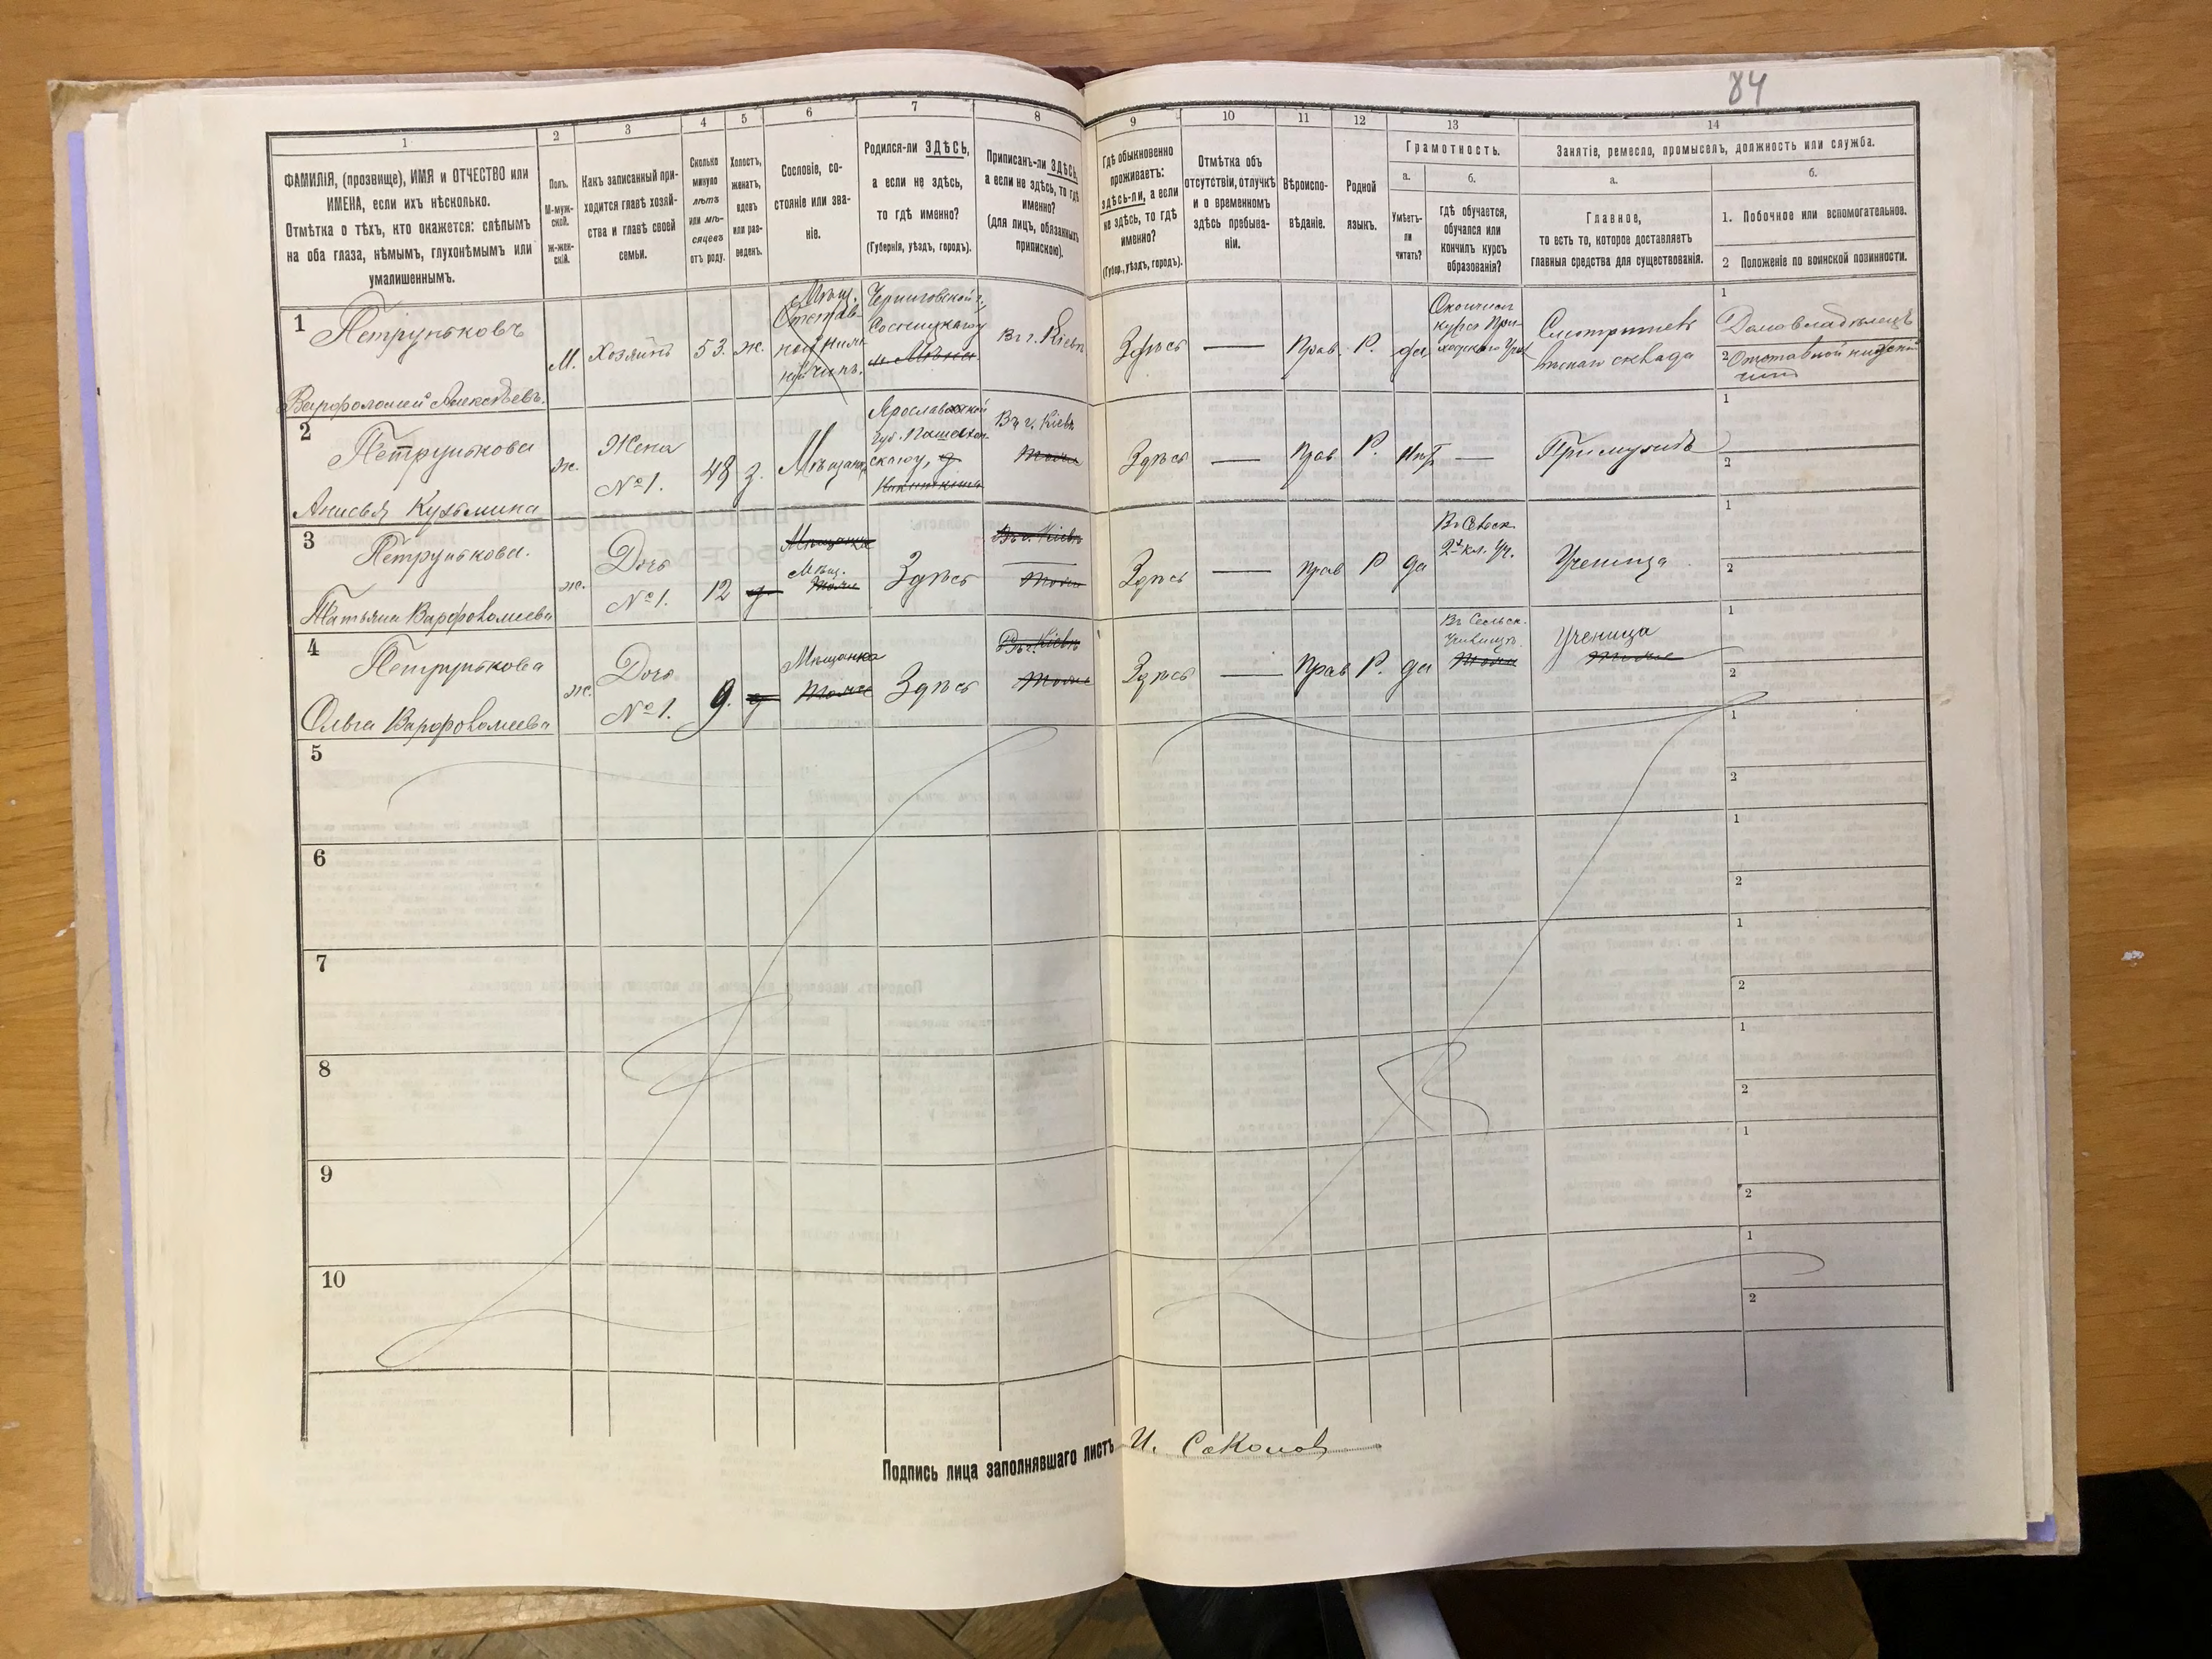 84
1
2
3
4
5
6
7
8
9
10
11
12
13
14
ФАМИЛІЯ, (прозвище), ИМЯ и ОТЧЕСТВО или
ИМЕНА, если ихъ нѣсколько.
Отмѣтка о тѣхъ, кто окажется: слѣпымъ
на оба глаза, нѣмымъ, глухонѣмымъ или
умалишеннымъ.
Полъ.
М-муж-
ской.
ж-жен-
скій.
Какъ записанный при-
ходится главѣ хозяй-
ства и главѣ своей
семьи.
Сколько
минуло
лѣтъ
или мѣ-
сяцевъ
отъ роду.
Холостъ,
женатъ,
вдовъ
или раз-
веденъ.
Сословіе, со-
стояніе или зва-
ніе.
Родился-ли ЗДѢСЬ,
а если не здѣсь,
то гдѣ именно?
(Губернія, уѣздъ, городъ).
Приписанъ-ли ЗДѢСЬ,
а если не здѣсь, то гдѣ
именно?
(для лицъ, обязанныхъ
припискою).
Гдѣ обыкновенно
проживаетъ:
здѣсь-ли, а если
не здѣсь, то гдѣ
именно?
(Губер., уѣздъ, городъ).
Отмѣтка объ
отсутствіи, отлучкѣ
и о временномъ
здѣсь пребыва-
ніи.
Вѣроиспо-
вѣданіе.
Родной
языкъ.
Грамотность.
а.
Умѣетъ-
ли
читать?
б.
гдѣ обучается,
обучался или
кончилъ курсъ
образованія?
Занятіе, ремесло, промыселъ, должность или служба.
а.
Главное,
то есть то, которое доставляетъ
главныя средства для существованія.
б.
1. Побочное или вспомогательное.
2 Положеніе по воинской повинности.
1
Петруньковъ
Варфоломей Алексѣевъ.
М.
Хозяинъ
53.
ж.
Мѣщ.
Отстав-
ной
чинъ.
Черниговской г.,
Сосницкаго у
м. Мѣна
Въ г. Кіевѣ
Здѣсь
—
Прав.
Р.
да
Окончил
курсъ При-
ходского Учил
Смотритель
склада
1
Домовладѣлецъ
2 Отставной нижній
чинъ
2
Петрунькова
Анисья Кузьмина
ж.
Жена
№ 1.
48
з.
Мѣщанка
Ярославской
губ. Пошехон-
скаго у,
Въ г. Кіевѣ
Тоже
Здѣсь
—
Прав
Р.
Нѣт
—
При мужѣ
1
2
3
Петрунькова.
Татьяна Варфоломеева
ж.
Дочь
№ 1.
12
д
Мѣщанка
Мѣщ.
Тоже
Здѣсь
Въ г. Кіевѣ
Тоже
Здѣсь
—
прав
Р
да
2х кл. Уч.
Ученица
1
2
4
Петрунькова
Ольга Варфоломеева
ж.
Дочь
№ 1.
9.
д
Мѣщанка
Тоже
Здѣсь
Въ г. Кіевѣ
Тоже
Здѣсь
—
Прав
Р.
да
Въ Сельск.
Училищѣ
Тоже
Ученица
Тоже
1
2
5
1
2
6
1
2
7
1
2
8
1
2
9
1
2
10
1
2
Подпись лица заполнявшаго листъ И. Соколов